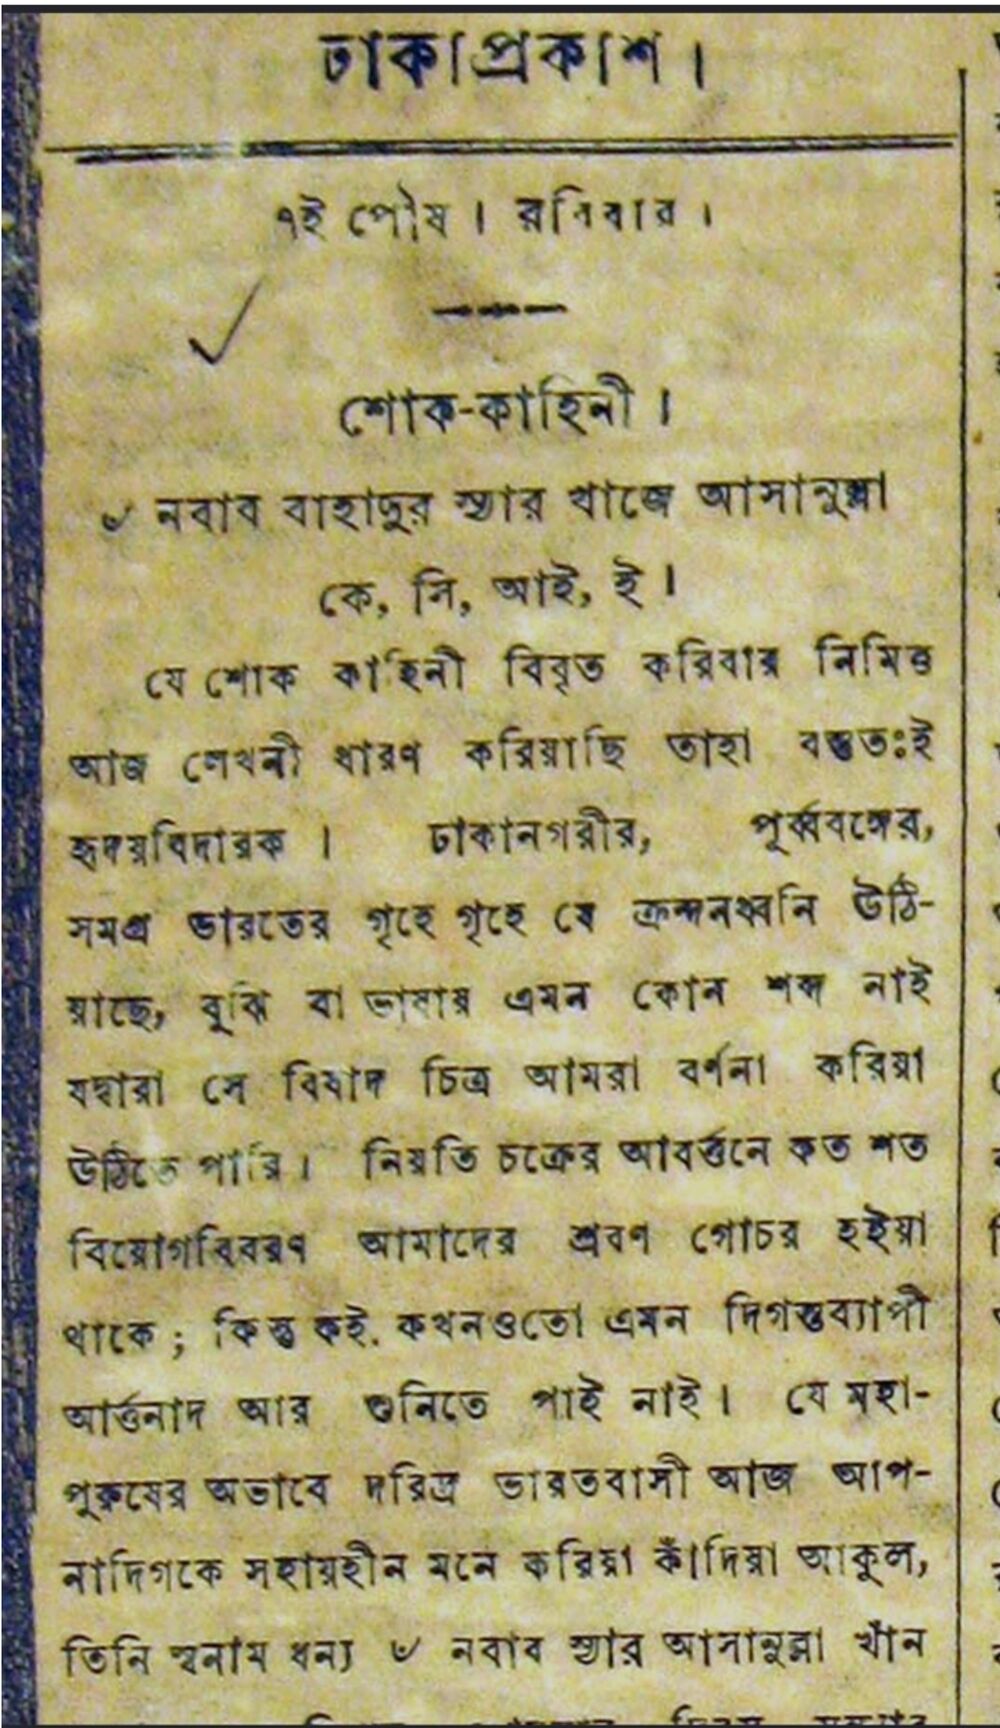 ঢাকাপ্রকাশ।
৭ই পৌষ। রবিবার।
শোক-কাহিনী।
৺ নবাব বাহাদুর স্যার খাজে আসানুল্লা
কে, সি, আই, ই।
যে শোক কাহিনী বিবৃত করিবার নিমিত্ত
আজ লেখনী ধারণ করিয়াছি তাহা বস্তুতঃই
হৃদয়বিদারক। ঢাকানগরীর, পূর্ব্ববঙ্গের,
সমগ্র ভারতের গৃহে গৃহে যে ক্রন্দনধ্বনি উঠি-
য়াছে, বুঝি বা ভাষায় এমন কোন শব্দ নাই
যদ্বারা সে বিষাদ চিত্র আমরা বর্ণনা করিয়া
উঠিতে পারি। নিয়তি চক্রের আবর্ত্তনে কত শত
বিয়োগবিবরণ আমাদের শ্রবণ গোচর হইয়া
থাকে; কিন্তু কই. কখনওতো এমন দিগন্তব্যাপী
আর্ত্তনাদ আর শুনিতে পাই নাই। যে মহা-
পুরুষের অভাবে দরিদ্র ভারতবাসী আজ আপ-
নাদিগকে সহায়হীন মনে করিয়া কাঁদিয়া আকুল,
তিনি স্বনাম ধন্য ৺ নবাব স্যার আসানুল্লা খাঁন